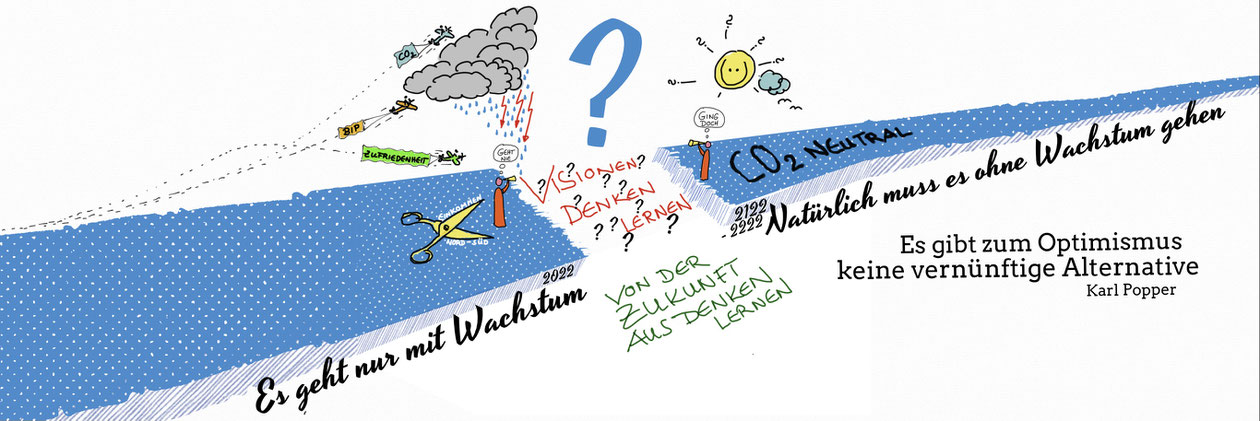 CO2
BIP
ZUFRIEDENHEIT
GEHT
NIE
?
GING
DOCH
VISIONEN
DENKEN
LERNEN
EINKOMMEN
NORD-SÜD
CO2 NEUTRAL
2022
Es geht nur mit Wachstum
2122
- 2222
Natürlich muss es ohne Wachstum gehen
VON DER
ZUKUNFT
AUS DENKEN
LERNEN
Es gibt zum Optimismus
keine vernünftige Alternative
Karl Popper